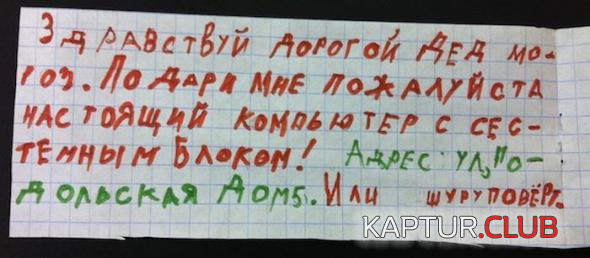 Здравствуй дорогой Дед мо-
роз. Подари мне пожалуйста
настоящий компьютер с сес-
темным блоком! Адрес ул, По-
дольская Дом5. Или шуруповёрт.
KAPTUR.CLUB